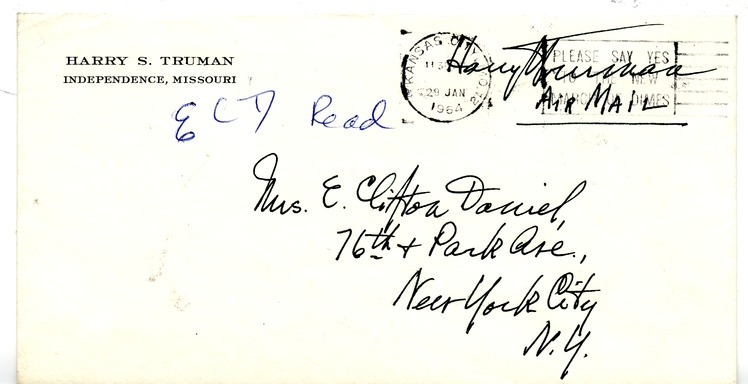 HARRY S. TRUMAN
INDEPENDENCE, MISSOURI
KANSAS CITY
29 JAN
1964
PLEASE SAY YES
TO THE NEW
MARCH OF DIMES
Harry Truman
AIR MAIL
Read
Mrs. E. Clifton Daniel,
76th & Park Ave.,
New York City
N.Y.